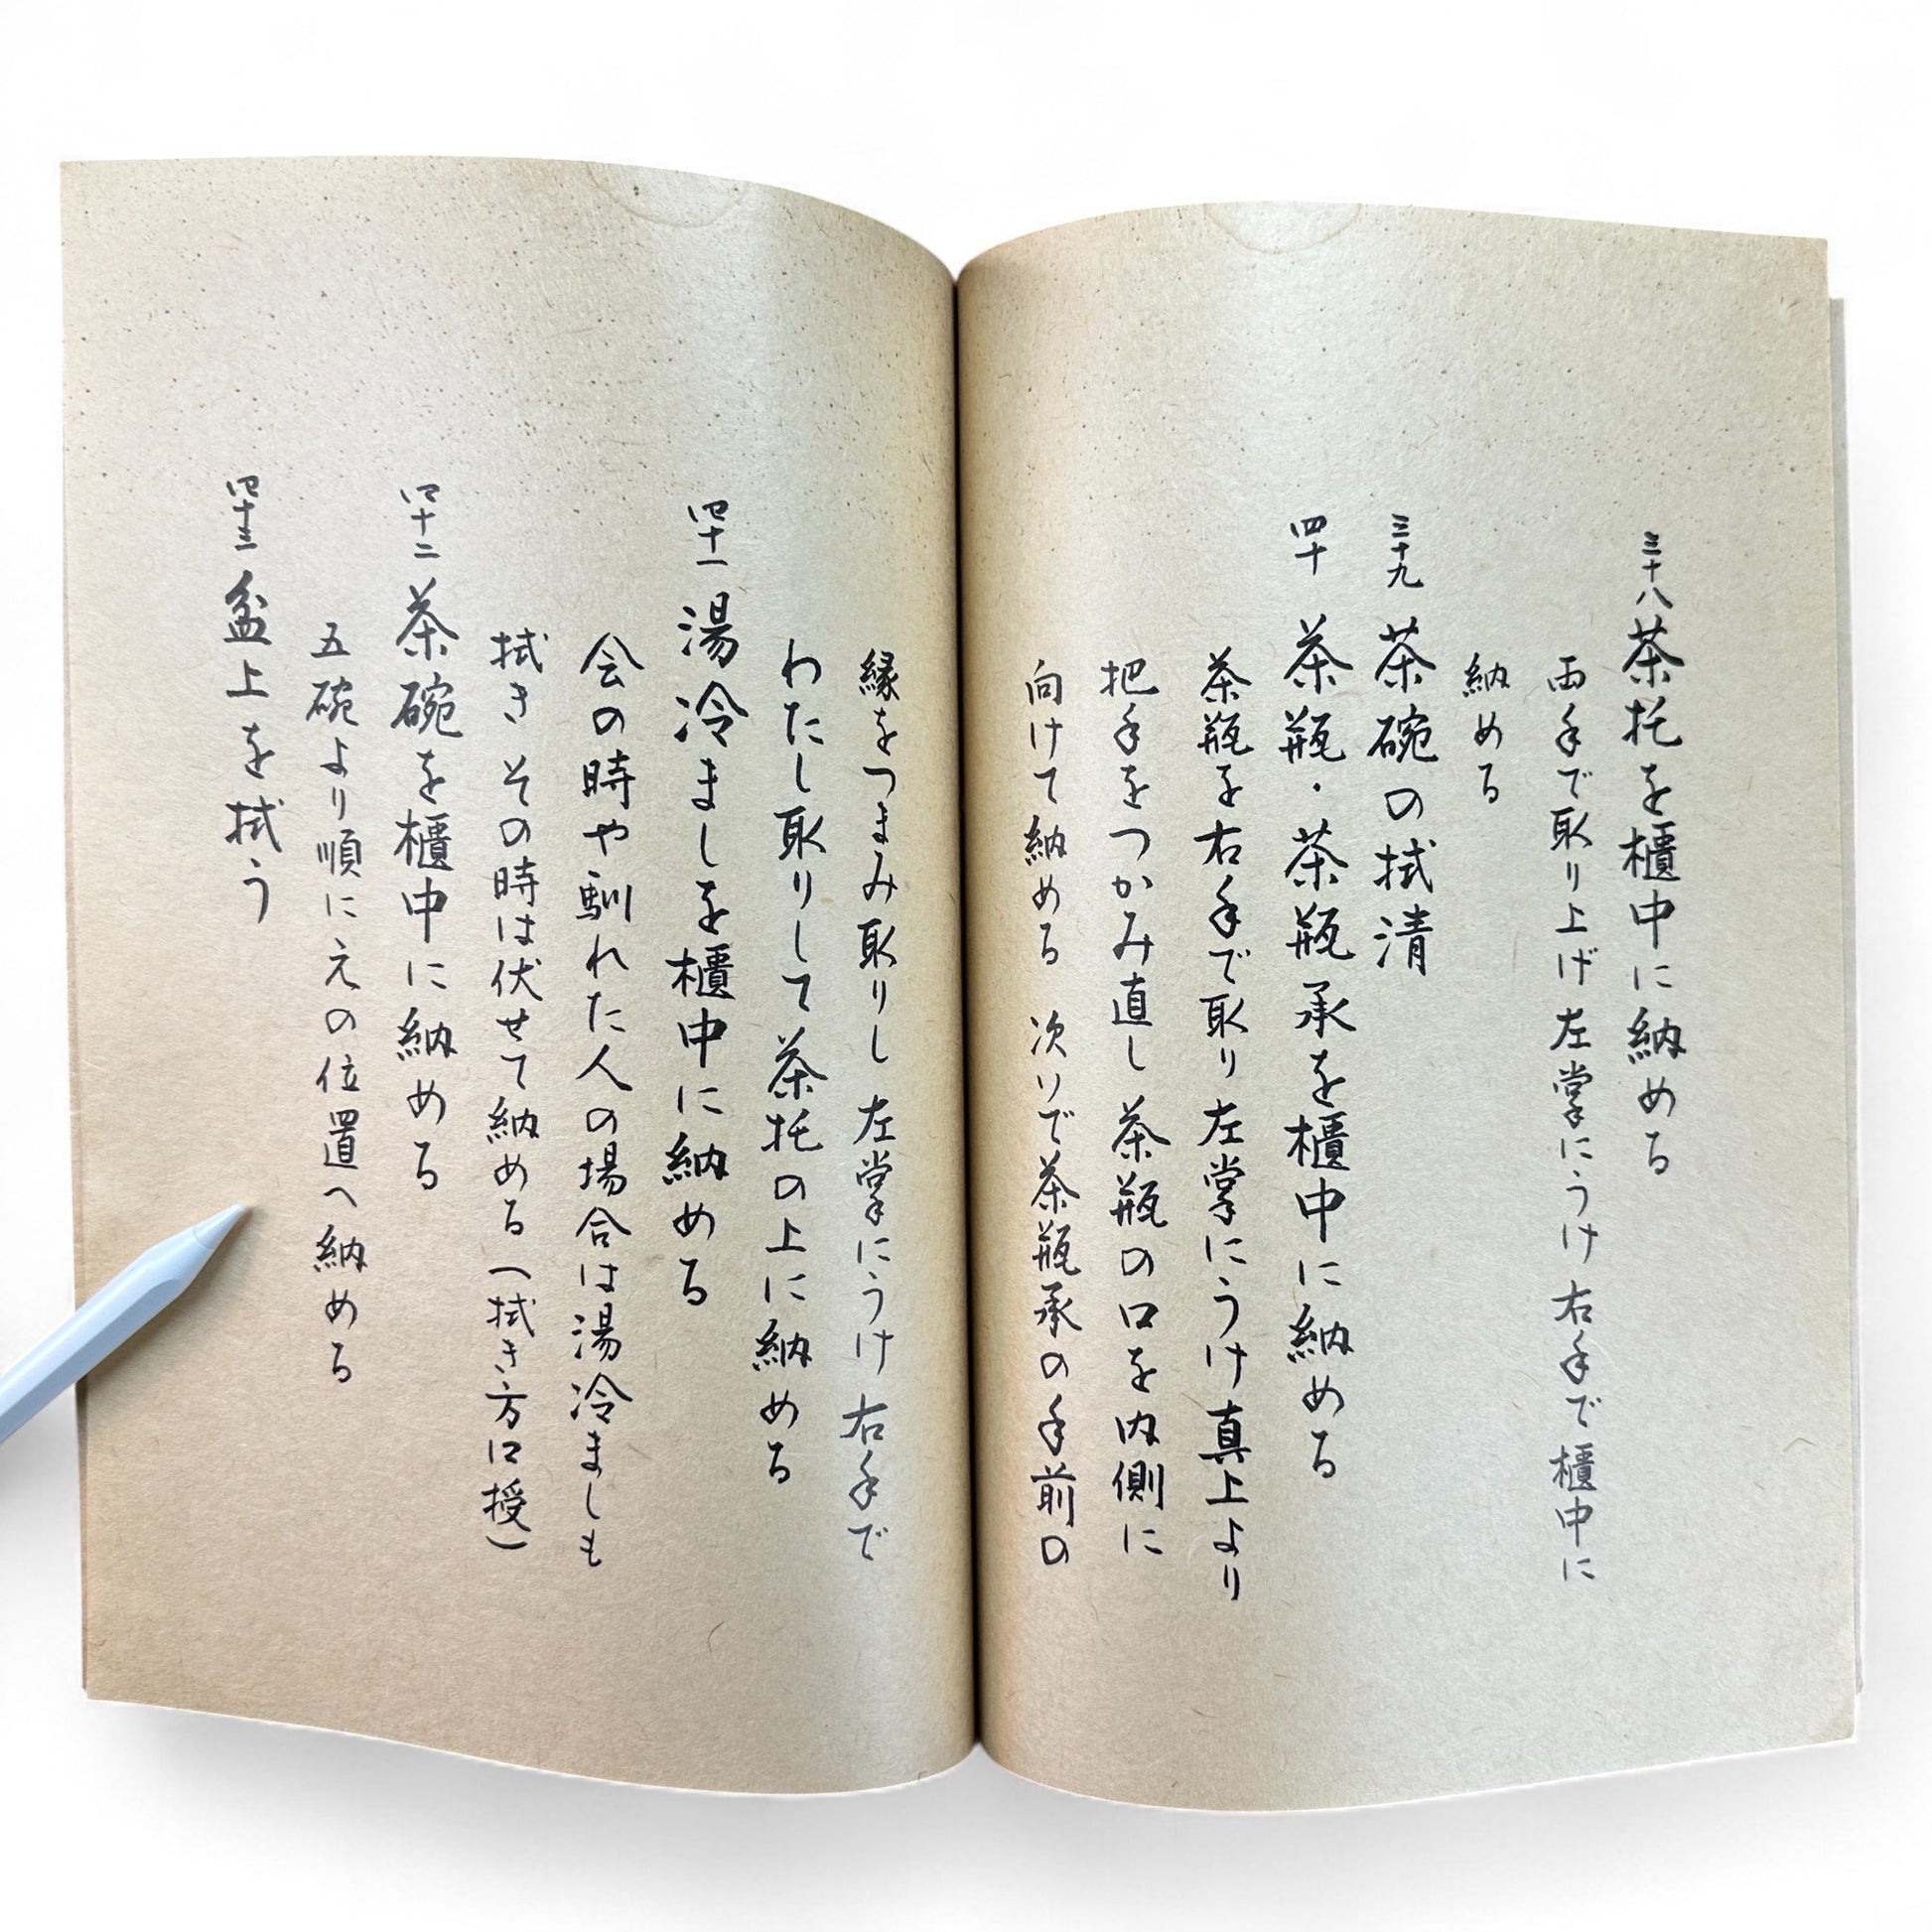 三十八 茶托を櫃中に納める
両手で取り上げ左掌にうけ右手で櫃中に
納める
三十九 茶碗の拭清
四十 茶瓶・茶瓶承を櫃中に納める
茶瓶を右手で取り左掌にうけ真上より
把手をつかみ直し茶瓶の口を内側に
向けて納める 次いで茶瓶承の手前の
縁をつまみ取りし 左掌にうけ右手で
わたし取りして茶托の上に納める
四十一 湯冷ましを櫃中に納める
会の時や馴れた人の場合は湯冷ましも
拭き その時は伏せて納める(拭き方口授)
四十二 茶碗を櫃中に納める
五碗より順に元の位置へ納める
四十三 盆上を拭う